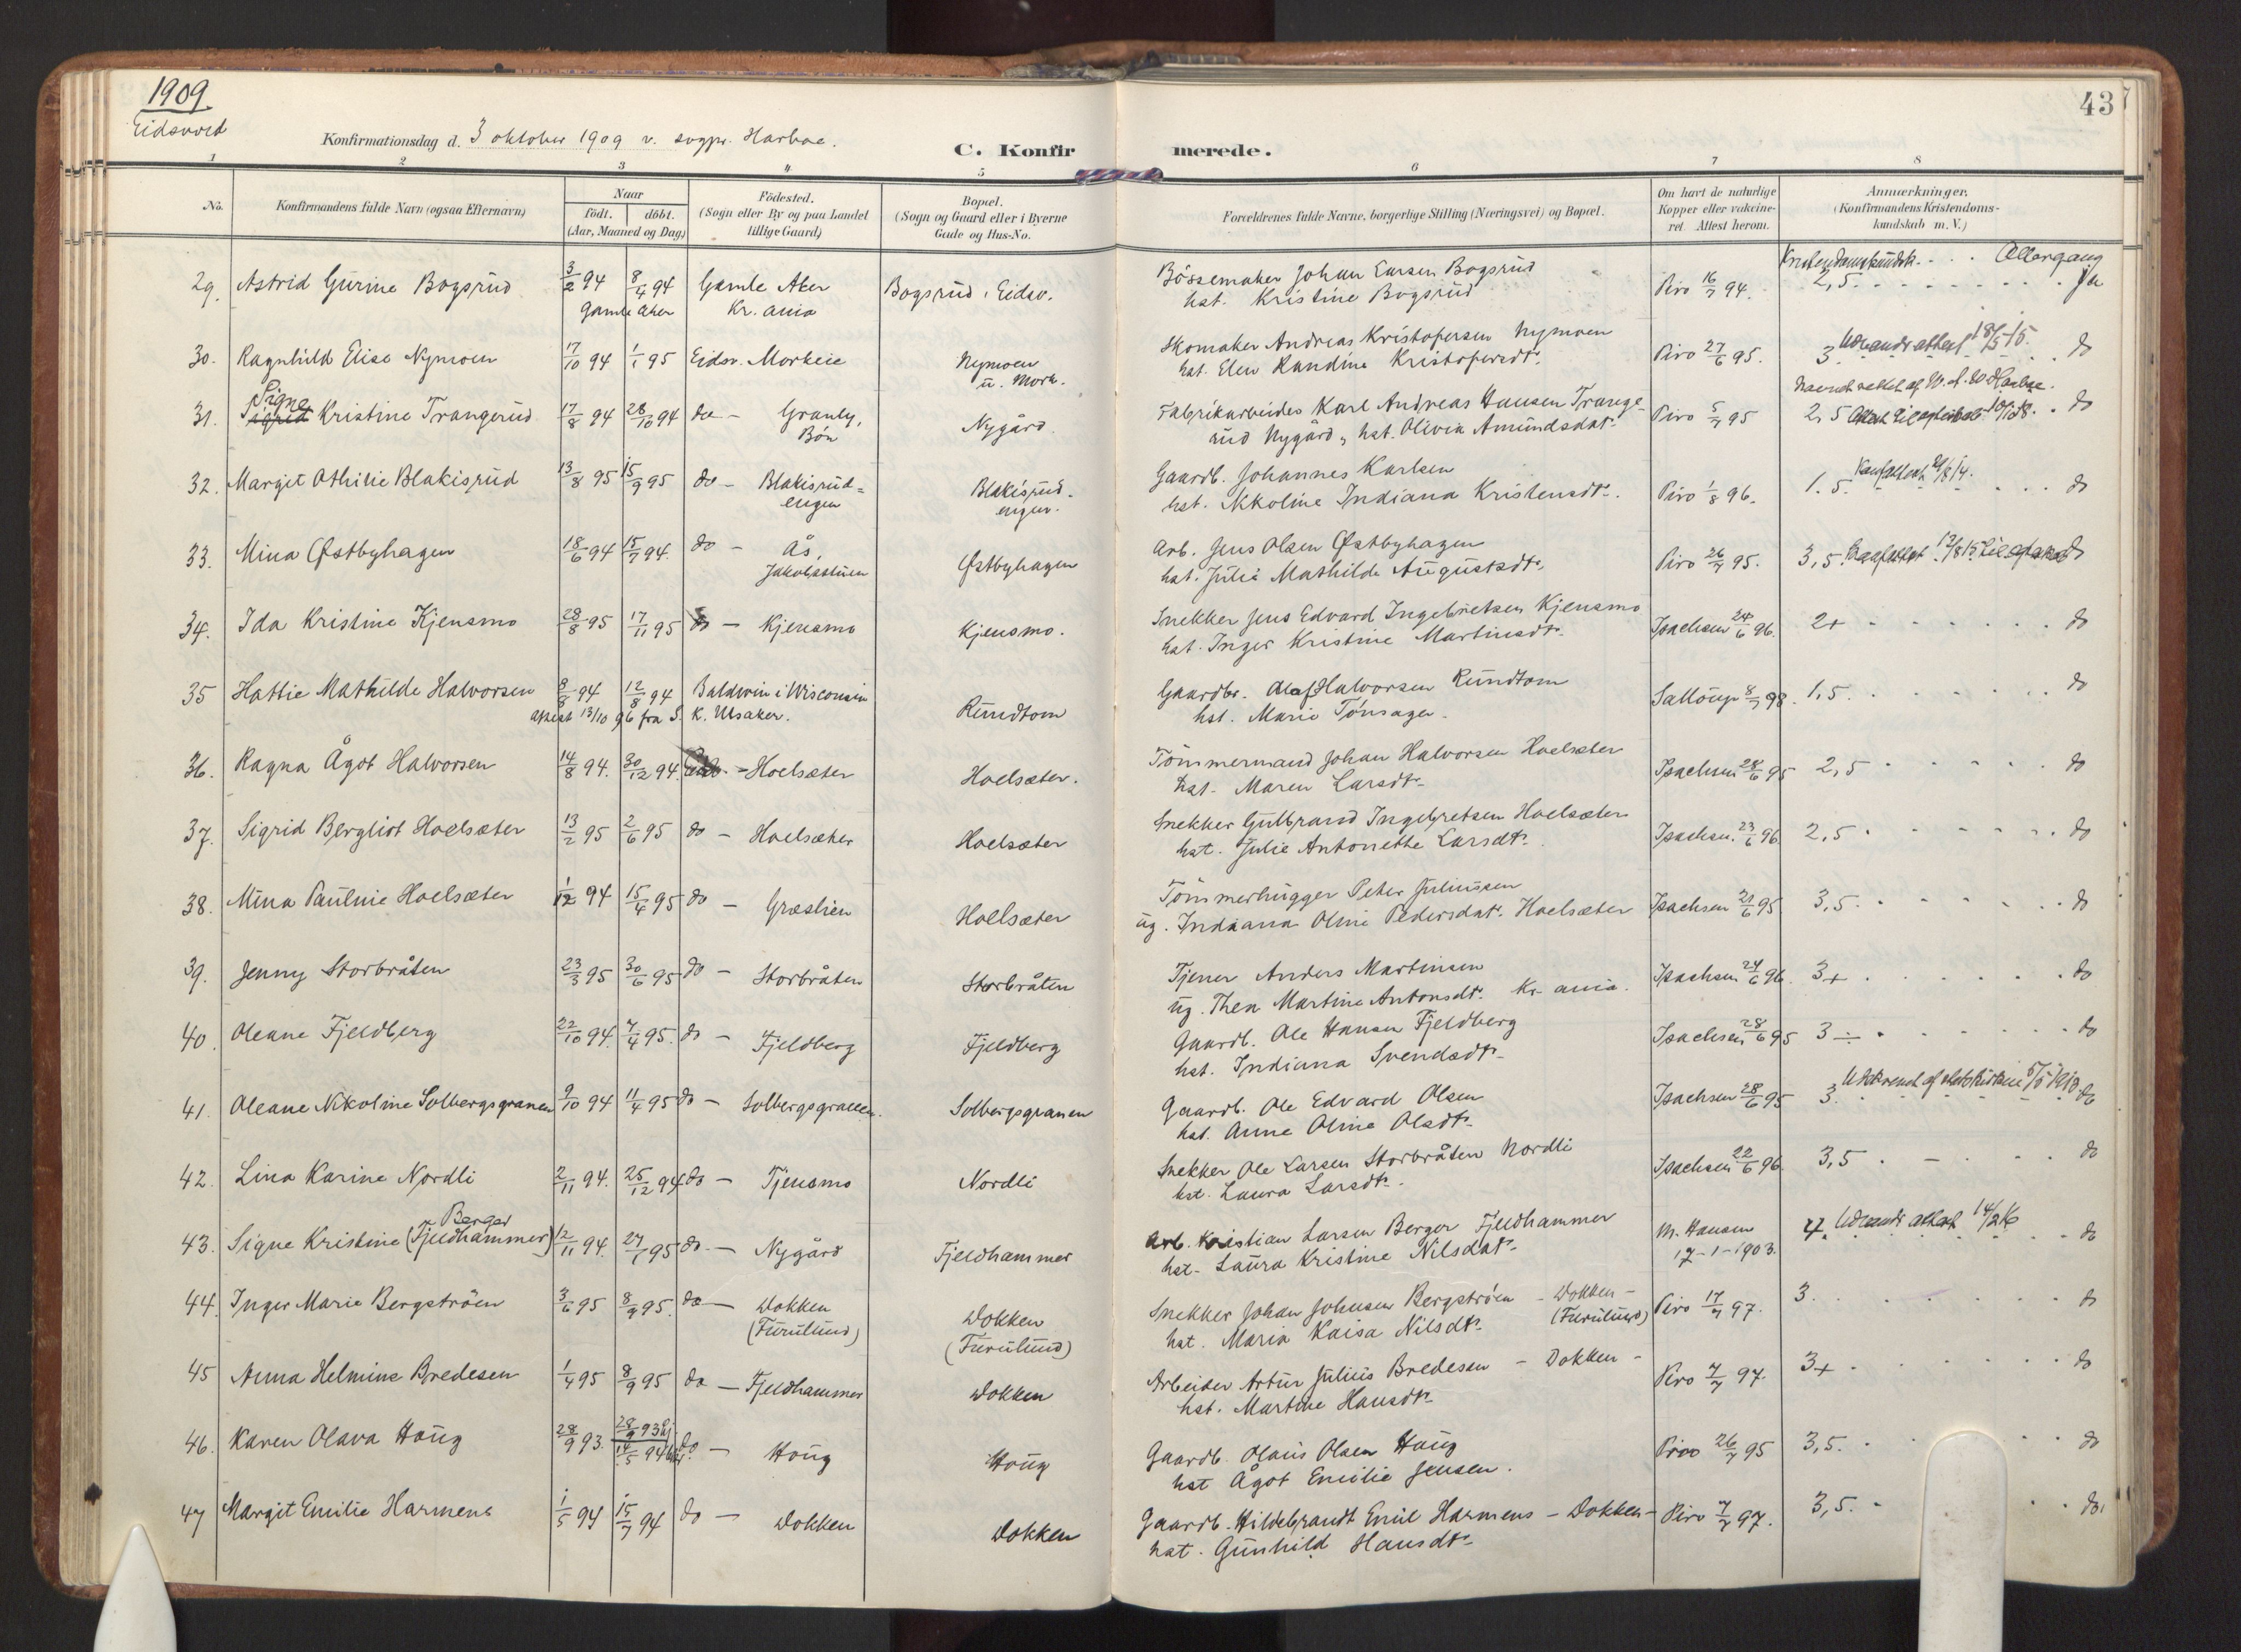 1909
Eidsvold
43
Konfirmationsdag d. 3 oktober 1909 v. sogpr. Harboe.
C. Konfirmerede.
1 2 3 4 5 6 7 8
No.
Konfirmandens fulde Navn (ogsaa Efternavn)
Naar
födt. döbt.
(Aar, Maaned og Dag.)
Födested.
(Sogn eller By og paa Landet
tillige Gaard)
Bopæl.
(Sogn og Gaard eller i Byerne
Gade og Hus-No.
Forældrenes fulde Navne, borgerlige Stilling (Næringsvei) og Bopæl.
Om havt de naturlige
Kopper eller vakcine-
ret. Attest herom.
Anmærkninger.
(Konfirmandens Kristendoms-
kundskab m. V.)
Kristendomskundsk. . . . Altergang
29. Astrid Gurine Bogsrud 3/2 94 8/4 94 Gamle Aker Bogsrud i Eidsv. Bössemaker Johan Larsen Bogsrud Piro 16/7 94. 2,5. Ja
Gamle Aker Kr.ania hst. Kristine Bogsrud
30. Ragnhild Elise Nymoen 17/10 94 1/1 95 Eidsv. Morkeie Nymoen Skomaker Andreas Kristofersen Nymoen Piro 27/6 95. 3 Utv. andr attest 18/5 15. do
u. Mork. hst. Elen Randine Kristofersdtr.
31. Signe Sigrid Kristine Trangerud 17/8 94 28/10 94 do - Granly, Nygård Fabrikarbeider Karl Andreas Hansen Trange- Piro 5/7 95 2,5 do
Bön rud Nygård, hst. Olivia Amundsdatr.
32. Margit Othilie Blakisrud 13/8 95 15/9 95 do - Blakisrud= Blakisrud- Gaardb. Johannes Karlsen Piro 1/8 96. 1.5. do
engen engen. hst. Nikoline Indiana Kristensdtr.
33. Mina Østbyhagen 18/6 94 15/7 94. do - Ås, Østbyhagen Arb. Jens Olsen Østbyhagen Piro 26/7 95. 3,5. do
Jakobsstuen hst. Julie Mathilde Augustsdtr.
34. Ida Kristine Kjensmo 28/8 95 17/11 95 do - Kjensmo Kjensmo. Snekker Jens Edvard Ingebretsen Kjensmo Isachsen 24/6 96. 2+ do
hst. Inger Kristine Martinsdtr.
35 Hattie Mathilde Halvorsen 8/8 94 12/8 94 Baldwin i Wisconsin Rundtom Gaardbr. Olaf Halvorsen Rundtom 8/7 98. 1,5. do
attest 13/10 96 fra S. K. Utsaker. hst. Marie Tönsager.
36. Ragna Ågot Halvorsen 14/8 94. 30/12 94. - Hoelsæter Hoelsæter. Tömmermand Johan Halvorsen Hoelsæter Isachsen 28/6 95 2,5 do
hst. Maren Larsdtr
37. Sigrid Bergliot Hoelsæter 13/2 95 2/6 95 do - Hoelsæter Hoelsæter Snekker Gulbrand Ingebretsen Hoelsæter Isachsen. 23/6 96. 2,5 do
hst. Julie Antonette Larsdtr.
38. Mina Pauline Hoelsæter 1/12 94 15/4 95 do - Græslien Hoelsæter Tömmerhugger Peter Juliussen Isachsen 21/6 95 3,5. do
ug. Indiana Oline Pedersdatr. Hoelsæter
39. Jenny Storbråten 23/3 95 30/6 95 do - Storbråten Storbråten Tjener Anders Martinsen Isachsen 24/6 96. 3+ do
ug. Thea Martine Antonsdtr. Kr.ania.
40. Oleane Fjeldberg 22/10 94. 7/4 95. do - Fjeldberg Fjeldberg Gaardb. Ole Hansen Fjeldberg Isachsen 28/6 95 3÷ do
hst. Indiana Svendsdtr
41. Oleane Nikoline Solbergsgranen 9/10 94 11/4 95 do - Solbergsgranen. Solbergsgranen Gaardb. Ole Edvard Olsen Isachsen 28/6 95 3. do
hst. Anne Oline Olsdtr
42. Lina Karine Nordli 2/11 94. 25/12 94 do - Tjensmo Nordli Snekker Ole Larsen Storbråten Nordli Isachsen 22/6 96. 3,5 do
hst. Laura Larsdtr.
43. Signe Kristine (Fjeldhammer) Berger 12/11 94. 27/1 95 do. - Nygård Fjeldhammer Arb. Kristian Larsen Berger Fjeldhammer M. Hansen 4. Utv andr attest 14/2 16 do
hst. Laura Kristine Nilsdatr 17-1-1903.
44. Inger Marie Bergströen 3/6 95 8/9 95. do - Dokken Dokken Snekker Johan Johnsen Bergströen - Dokken - Piro 17/7 97. 3. do
(Furulund) (Furulund) hst. Maria Kaisa Nilsdtr (Furulund)
45 Anna Helmine Bredesen 1/4 95 8/9 95 do - Fjeldhammer Dokken Arbeider Artur Julius Bredesen - Dokken - Piro 7/7 97. 3+ do
hst. Martine Hansdtr
46. Karen Olava Houg 28/9 93. 28/9 93 hj 14/5 94 do - Houg Houg Gaardb. Olaus Olsen Houg Piro 26/7 95 3,5. do
hst Ågot Emilie Jensen.
47 Margit Emilie Harmens 1/5 94 15/7 94 do - Dokken Dokken Gaardb. Hildebrandt Emil Harmens - Dokken - Piro 7/7 97. 3,5. do.
hst. Gunhild Hansdtr